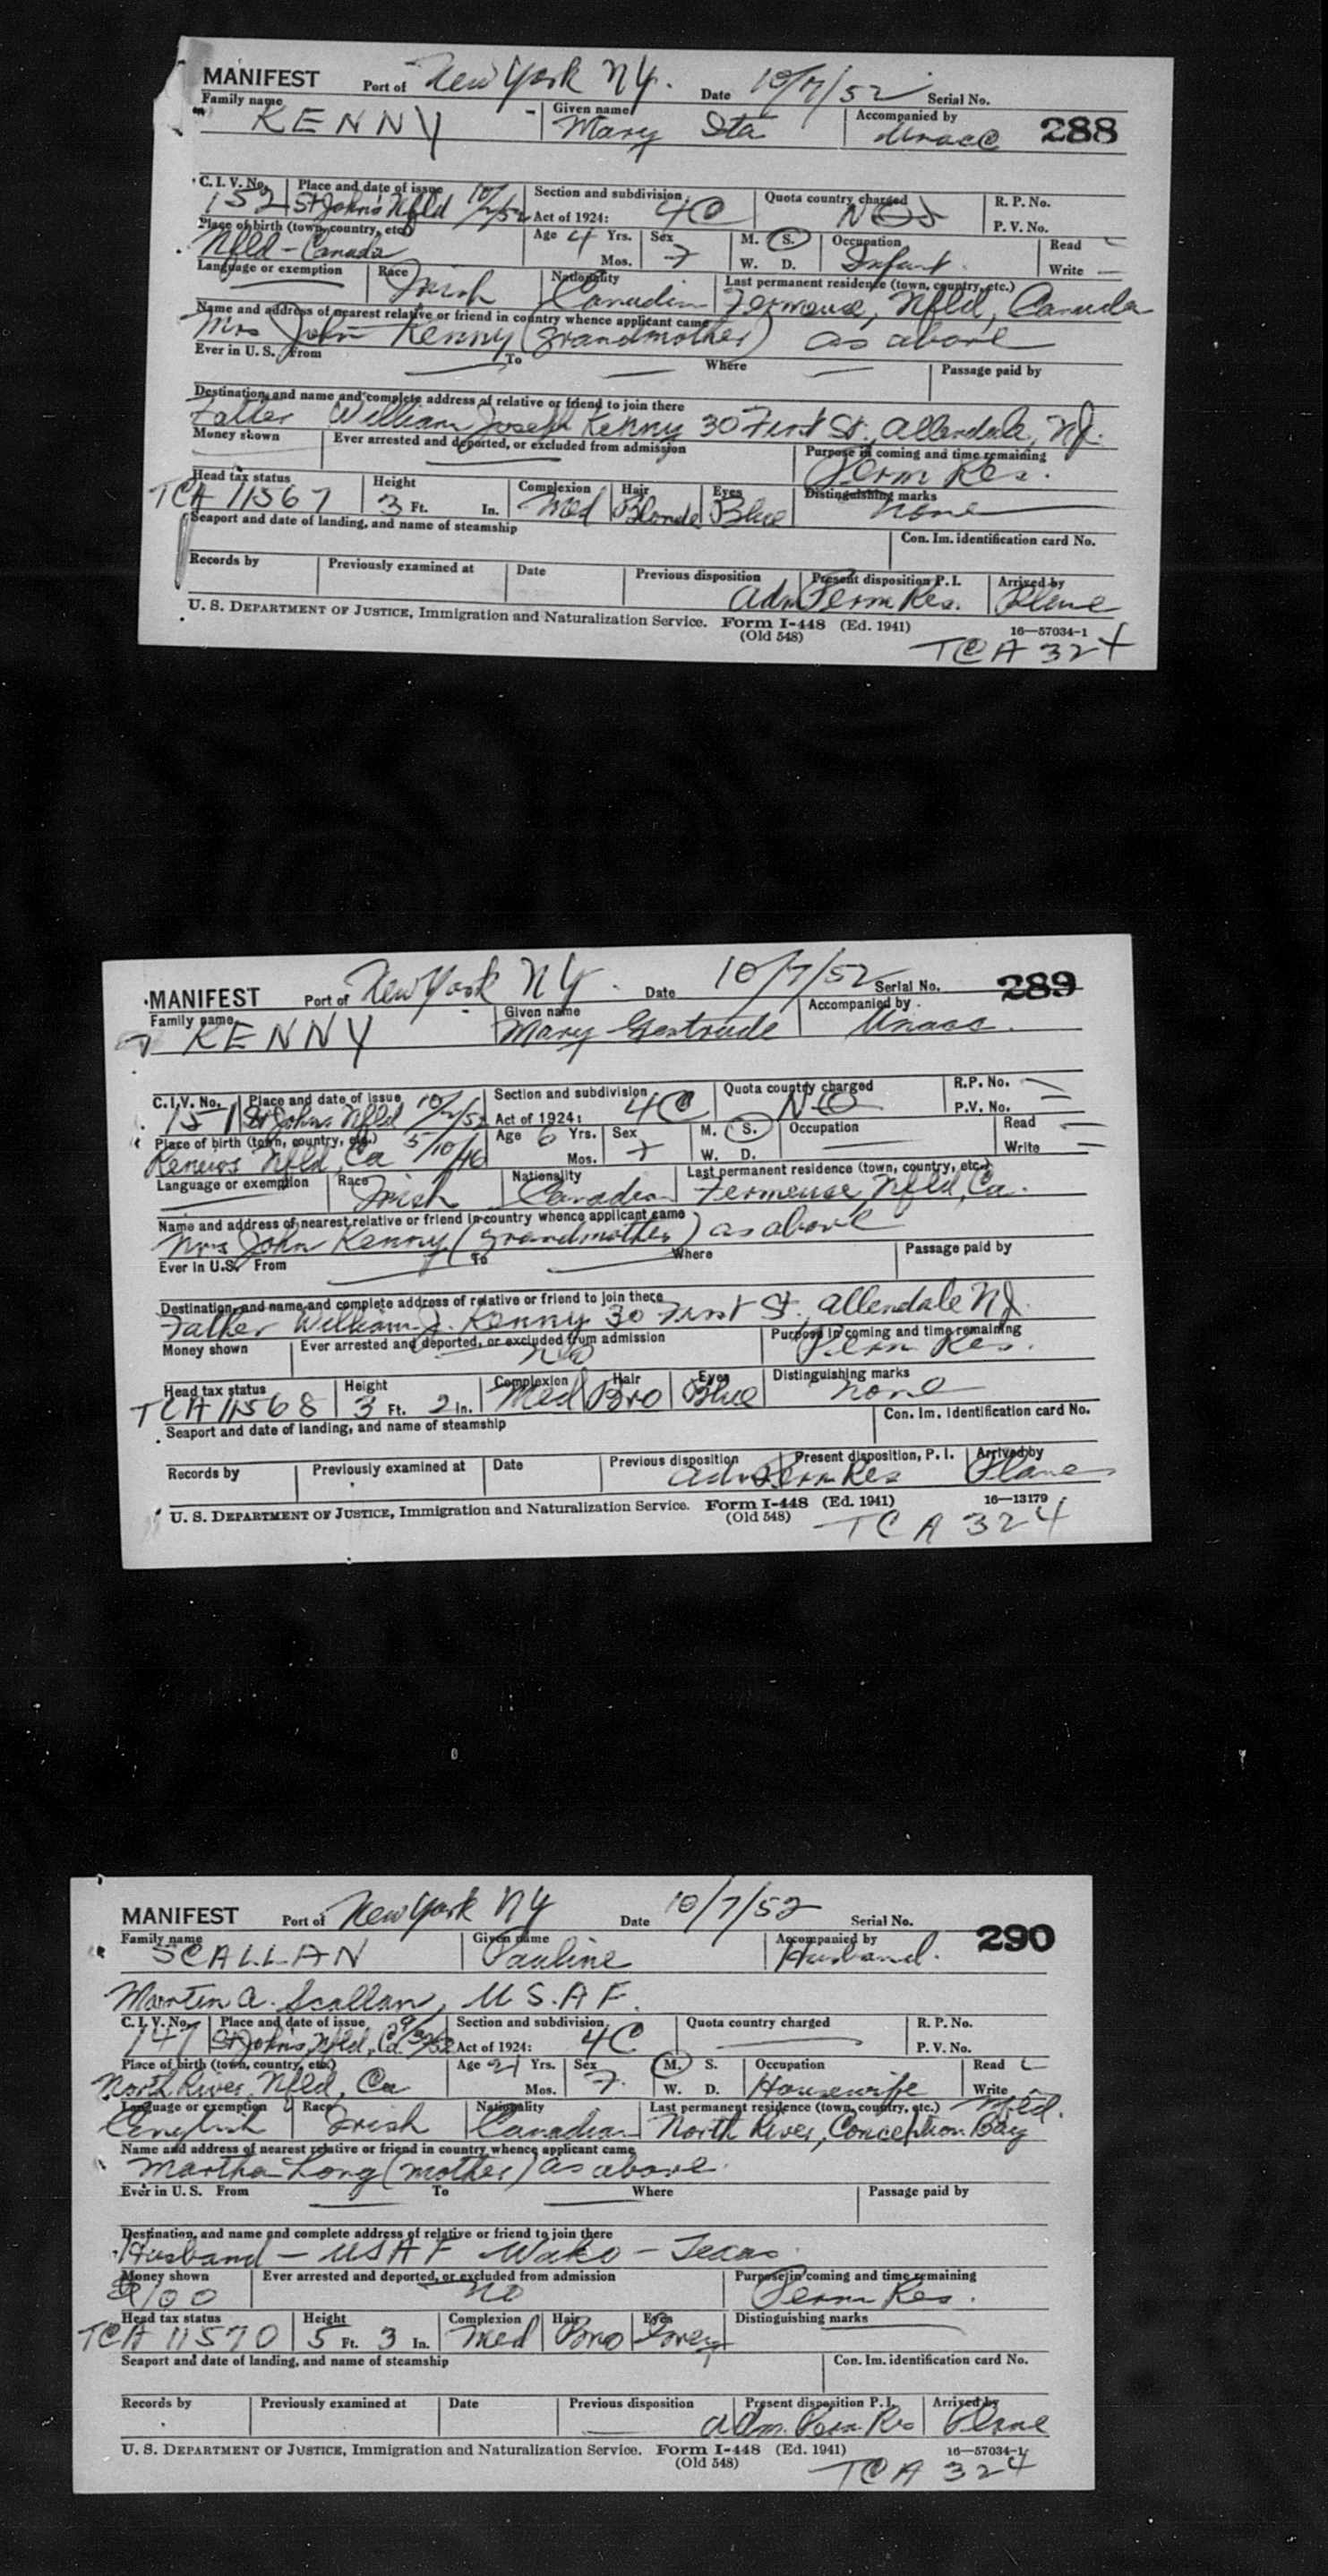 MANIFEST Port of New York NY. Date 10/7/52 Serial No.
Family name Given name Accompanied by 288
KENNY Mary Ita Unacc
C. I. V. No. Place and date of issue Section and subdivision Quota country charged R. P. No.
152 St Johns Nfld 10/2/52 Act of 1924: 4C P. V. No.
Place of birth (town, country, etc.) Age 4 Yrs. Sex M. S. Occupation Read
Nfld - Canada Mos. F W. D. Infant. Write —
Language or exemption Race Nationality Last permanent residence (town, country, etc.)
Irish Canadian Fermeuse, Nfld, Canada
Name and address of nearest relative or friend in country whence applicant came
Mrs John Kenny (grandmother) as above
Ever in U. S. From To Where Passage paid by
Destination, and name and complete address of relative or friend to join there
Father William Joseph Kenny 30 First St., Allendale, NJ.
Money shown Ever arrested and deported, or excluded from admission Purpose in coming and time remaining
Perm Res.
Head tax status Height Complexion Hair Eyes Distinguishing marks
TCA 11567 3 Ft. In. Med Blonde Blue none
Seaport and date of landing, and name of steamship Con. Im. identification card No.
Records by Previously examined at Date Previous disposition Present disposition P. I. Arrived by
Adm Perm Res. Plane
U. S. DEPARTMENT OF JUSTICE, Immigration and Naturalization Service. Form I-448 (Ed. 1941) 16—57034-1
(Old 548) TCA 324
MANIFEST Port of New York NY. Date 10/7/52 Serial No. 289
Family name Given name Accompanied by
KENNY Mary Gertrude Unacc.
C. I. V. No. Place and date of issue Section and subdivision Quota country charged R. P. No. —
151 St Johns Nfld 10/2/52 Act of 1924: 4C P. V. No. —
Place of birth (town, country, etc.) 5/10/46 Age 6 Yrs. Sex M. S. Occupation Read —
Renews Nfld, Ca Mos. F W. D. Write —
Language or exemption Race Nationality Last permanent residence (town, country, etc.)
Irish Canadian Fermeuse, Nfld, Ca.
Name and address of nearest relative or friend in country whence applicant came
Mrs John Kenny (grandmother) as above
Ever in U. S. From To Where Passage paid by
Destination, and name and complete address of relative or friend to join there
Father William J. Kenny 30 First St., Allendale NJ.
Money shown Ever arrested and deported, or excluded from admission Purpose in coming and time remaining
No Perm Res.
Head tax status Height Complexion Hair Eyes Distinguishing marks
TCA 11568 3 Ft. 2 In. Med Bro Blue none
Seaport and date of landing, and name of steamship Con. Im. identification card No.
Records by Previously examined at Date Previous disposition Present disposition, P. I. Arrived by
Adm Perm Res Plane
U. S. DEPARTMENT OF JUSTICE, Immigration and Naturalization Service. Form I-448 (Ed. 1941) 16—13179
(Old 548) TCA 324
MANIFEST Port of New York NY Date 10/7/52 Serial No.
Family name Given name Accompanied by 290
SCALLAN Pauline Husband.
Martin A. Scallan, U.S.A.F.
C. I. V. No. Place and date of issue Section and subdivision Quota country charged R. P. No.
147 St John's, Nfld, Ca. Act of 1924: 4C P. V. No.
Place of birth (town, country, etc.) Age 21 Yrs. Sex M. S. Occupation Read
North River, Nfld, Ca Mos. F. W. D. Housewife Write
Language or exemption Race Nationality Last permanent residence (town, country, etc.) Nfld.
English Irish Canadian North River, Conception Bay
Name and address of nearest relative or friend in country whence applicant came
Martha Long (mother) as above.
Ever in U. S. From To Where Passage paid by
Destination, and name and complete address of relative or friend to join there
Husband - USAF Wako - Texas.
Money shown Ever arrested and deported, or excluded from admission Purpose in coming and time remaining
$100 No Perm Res.
Head tax status Height Complexion Hair Eyes Distinguishing marks
TCA 11570 5 Ft. 3 In. Med Bro Grey
Seaport and date of landing, and name of steamship Con. Im. identification card No.
Records by Previously examined at Date Previous disposition Present disposition P. I. Arrived by
Adm. Perm Res Plane
U. S. DEPARTMENT OF JUSTICE, Immigration and Naturalization Service. Form I-448 (Ed. 1941) 16—57034-1
(Old 548) TCA 324